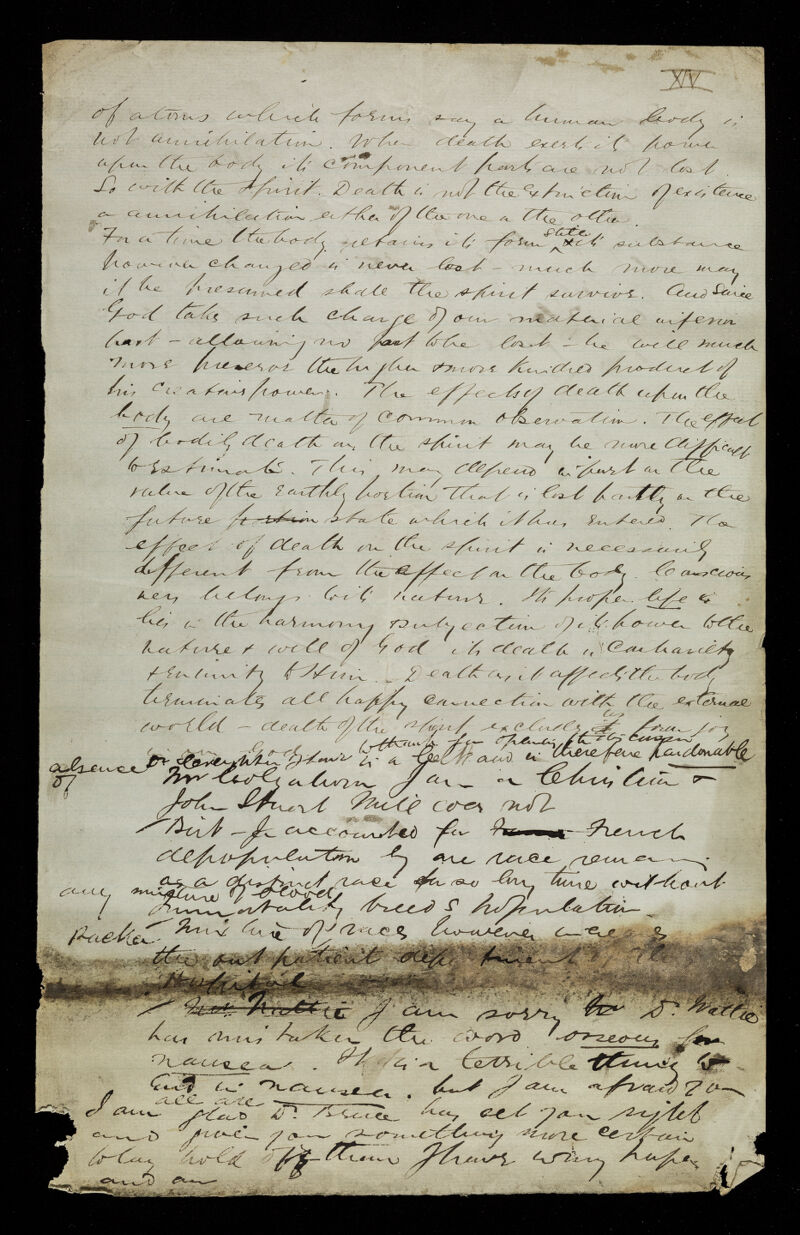 XIV
of atoms which forms say a human body is
not annihilation. When death exerts its power
upon the body its component parts are not lost
So with the spirit. Death is not the extinction of existence
or annihilation either of the one or the other.
For a time the body retains its form state its substance
however changed is never lost - much more may
it be presumed shall the spirit survive. And since
God takes such charge of our material inferior
part - allowing no part to be lost - he will much
more preserve the higher & more kindred product of
his creative power. The effects of death upon the
body are matter of common observation. The effect
of bodily death on the spirit may be more difficult
to estimate. This may depend in part on the
value of the earthly portion that is lost partly on the
future portion state which it has entered. The
effect of death on the spirit is necessarily
different from the effect on the body. Conscious
ness belongs to its nature. Its proper life is
lies in the harmony & subjection of its power to the
nature & will of God its death is contrariety
& enmity to Him. Death as it affects the body
terminates all happy connection with the external
world - death of the spirit excludes it from joy
in God
without for opening the discussion
absence of or in a and is therefore pardonable
Mr I am a Christian &
John Stuart Mill does not
But - Je accounted for French
depopulation by one race remaining
as a distinct race for so long time without
any mixture of blood
Immortality breeds population
Packer Mixture of races however increases
the out patient department of the
Hospital
Mr. Wattie I am sorry Dr. Wattie
has mistaken the word osseous for
nausea. It is a terrible thing to
end in nausea. but I am afraid
all are
I am glad Dr. Bruce has set you right
and given you something more certain
to lay hold of than I have
and an